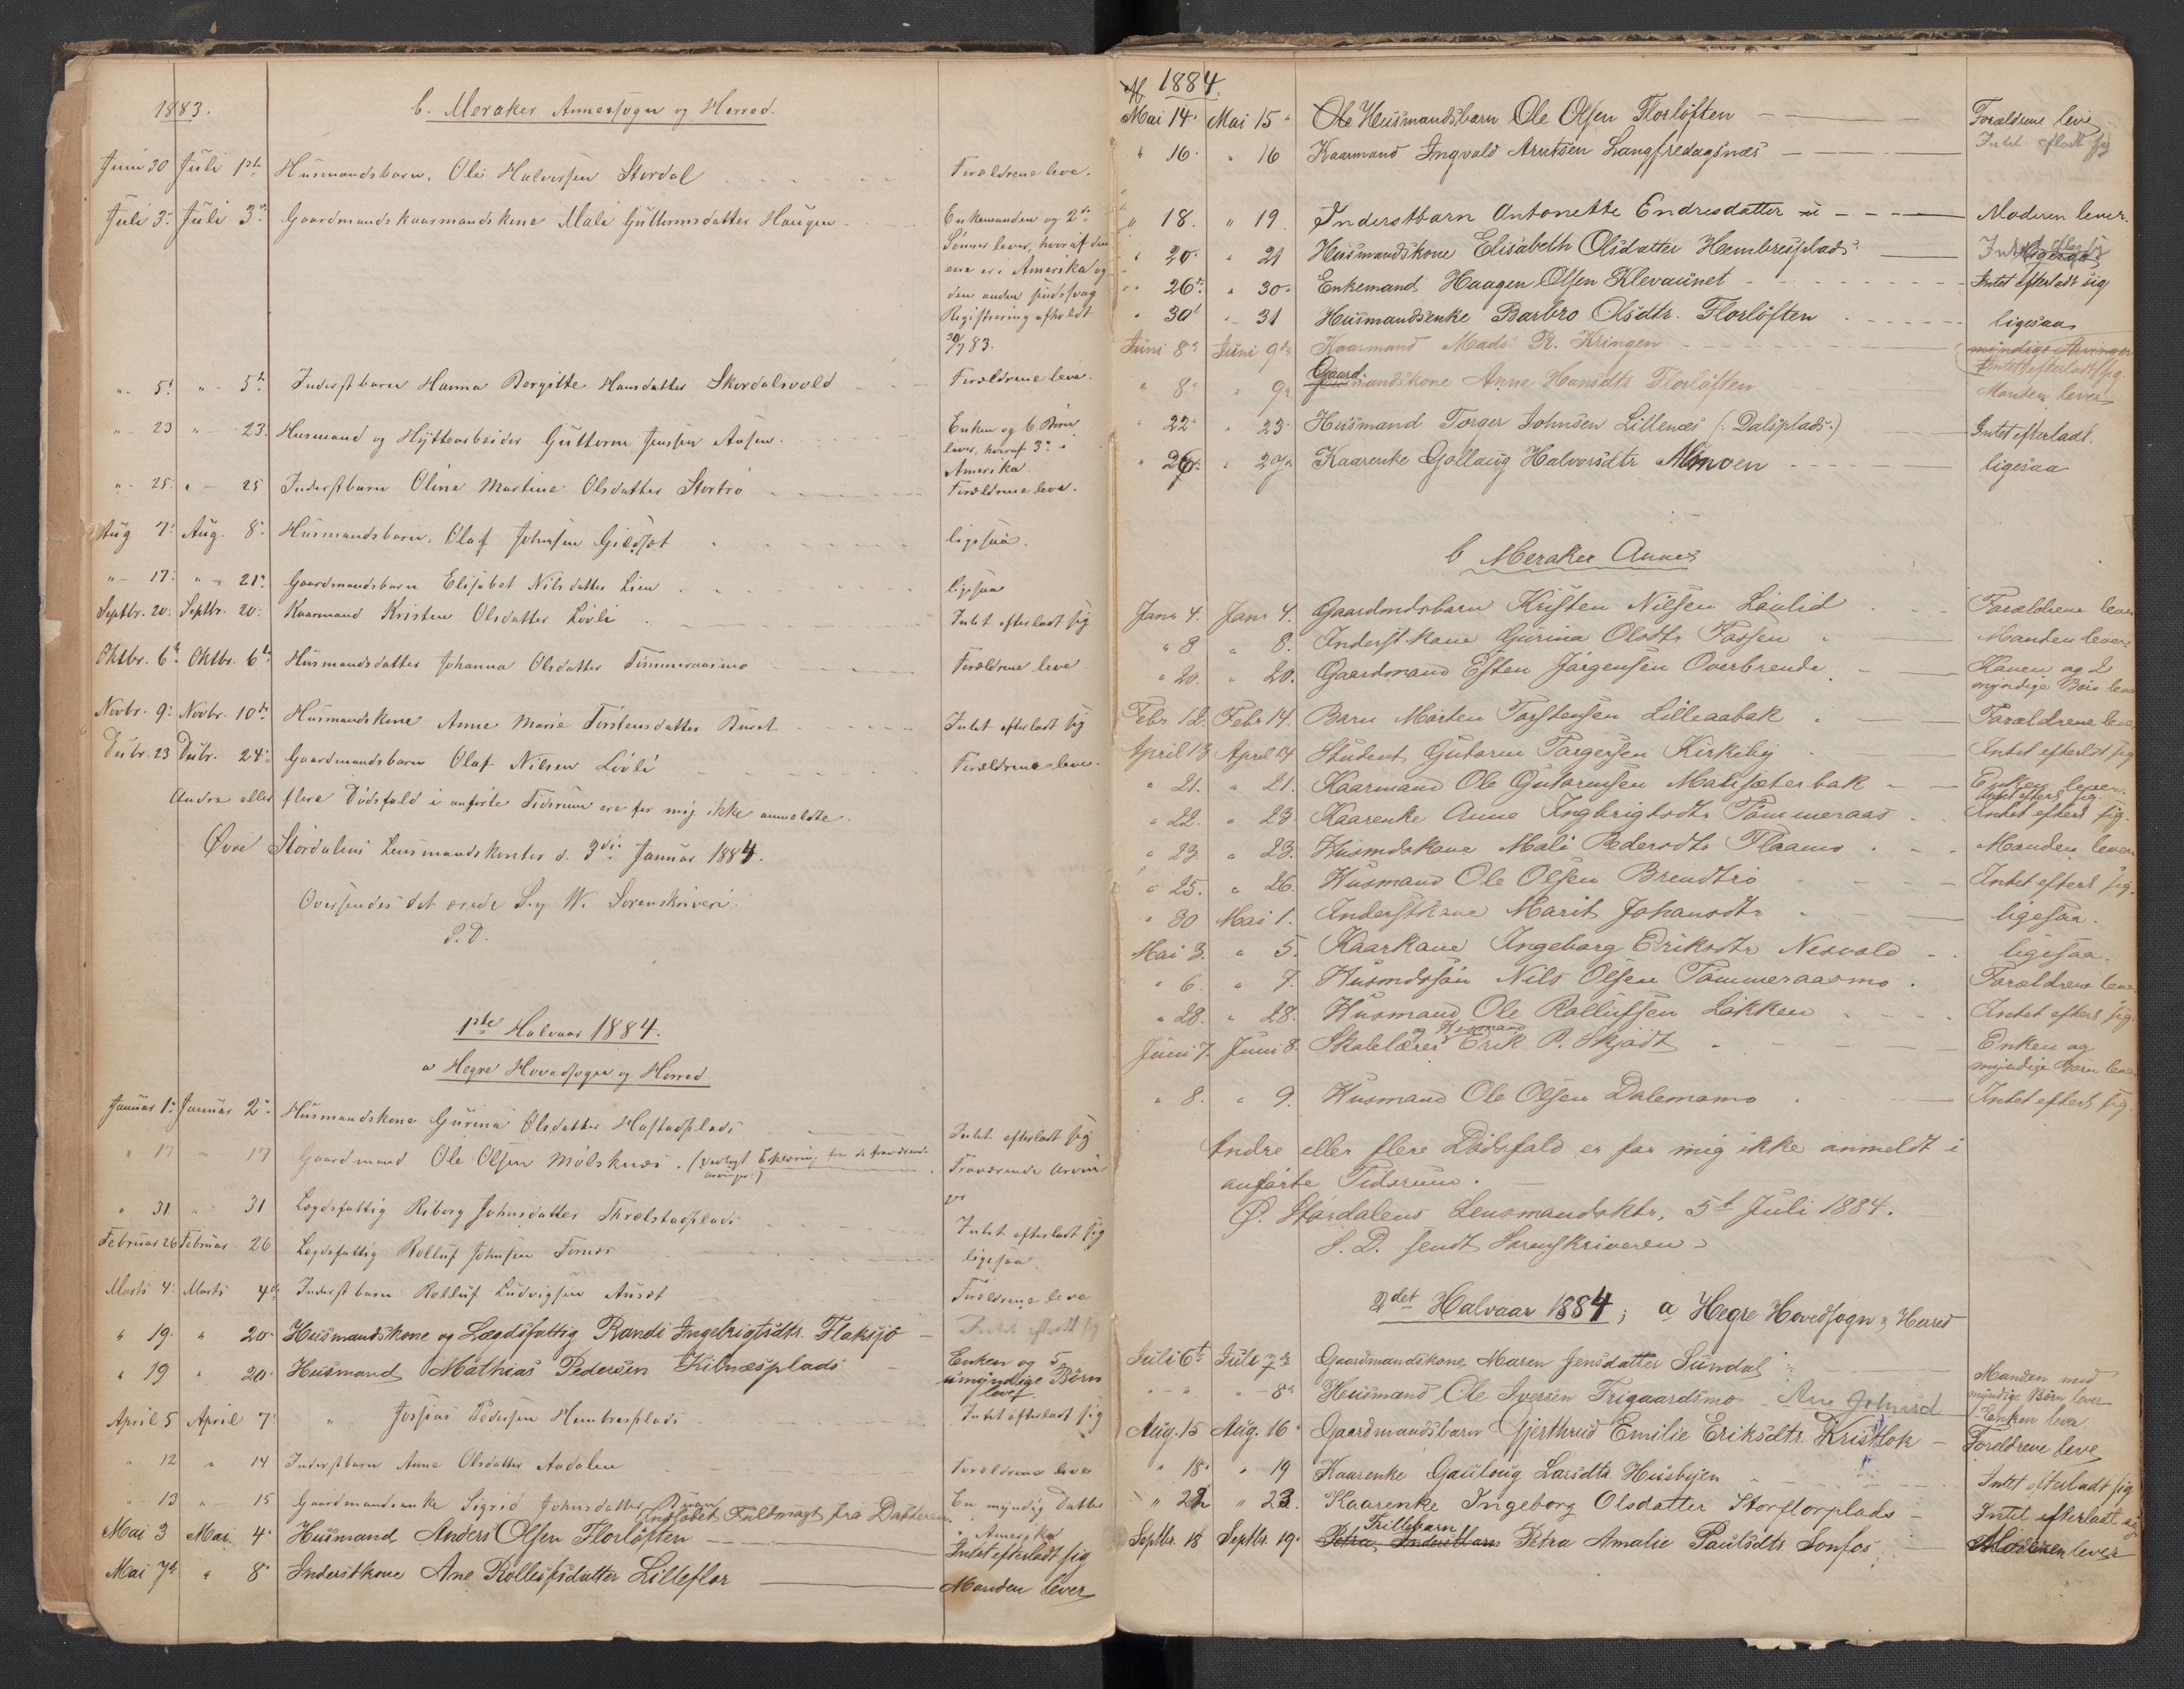 1883. b. Meraker Annexsogn og Herred.
Juni 30 Juli 1ste Husmandsbarn, Ole Halvorsen Stordal Forældrene leve.
Juli 3: Juli 3: Gaardmandskaarmandskone Mali Guttormsdatter Haugen Enkemanden og 2de
Sønner lever, hvoraf den
ene er i Amerika og
den anden sindssvag
Registrering afholdt
30/7 83.
" 5t " 5t Inderstbarn Hanna Bergitte Hansdatter Skordalsvold Forældrene leve.
" 23 " 23. Husmand og Hytterarbeider Guttorm Jensen Aasen. Enken og 6 Børn
lever, hvoraf 3 i
Amerika
" 25: " 25 Inderstbarn Oline Martine Olsdatter Stortrø Forældrene leve.
Aug 7: Aug. 8: Husmandsbarn, Olaf Johnsen Gilset ligesaa.
" 17: " 21: Gaardmandsbarn Elisabet Nilsdatter Lien ligesaa
Septbr. 20: Septbr. 20: Kaarmand Kristen Olsdatter Løvli Intet efterladt sig
Oktbr. 6t Oktbr. 6t Husmandsdatter Johanna Olsdatter Tømmeraasmo Forældrene leve
Novbr. 9: Novbr. 10de Husmandskone Anne Marie Torstensdatter Intet efterladt sig
Decbr. 23 Decbr. 24: Gaardmandsbarn Olaf Nilsen Løvli Forældrene leve.
Andre eller flere Dødsfald i anførte Tidsrum ere for mig ikke anmeldte.
Øvre Størdalens Lensmandskontor d. 3die Januar 1884.
Oversendes det ærede S. og W. Sorenskriveri.
S. D.
1ste Halvaar 1884.
a Hegre Hovedsogn og Herred.
Januar 1: Januar 2: Husmandskone Gurina Olsdatter Hastadplads Intet efterladt sig
" 17 " 17 Gaardmand Ole Olsen Mølsknæs. (Vedlagt Erklæring fra de fraværende Fraværende Arvin-
arvinger) ger
" 31 " 31 Lægdsfattig Riborg Johnsdatter Thrælstadplads Intet efterladt sig
Februar 26 Februar 26 Lægdsfattig Rolluf Johnsen Fornes ligesaa
Marts 4: Marts 4de Inderstbarn Rolluf Ludvigsen Auset Forældrene leve
" 19. " 20. Husmandskone og Lægdsfattig Randi Ingebrigtsdtr. Flaksjø Intet efterladt sig
" 19 " 20. Husmand Mathias Pedersen Kilnæsplads Enken og 5
umyndige Børn
lever
April 5 April 7. " Josias Pedersen Hembresplads Intet efterladt sig
" 12 " 14 Inderstbarn Anne Olsdatter Aadalen Forældrene leve
" 13 " 15 Gaardmandsenke Sigrid Johnsdatter En myndig Datter
indløbet Fuldmagt fra Datteren. i Amerika
Mai 3 Mai 4. Husmand, Anders Olsen Florløften Intet efterladt sig
Mai 7de " 8. Inderstkone Ane Rollefsdatter Lilleflor Manden lever
1884.
Mai 14. Mai 15. Husmandsbarn Ole Olsen Florløften Forældrene leve
" 16. " 16 Kaarmand Ingvald Arntsen Langfredagsnæs Intet efterladt sig
" 18. " 19. Inderstbarn Antonette Endresdatter Moderen lever.
" 20. " 21 Husmandskone Elisabeth Olsdatter Hembresplads
" 26. " 30. Enkemand Haagen Olsen Klevaunet Intet efterladt sig
" 30. " 31 Husmandsenke Barbro Olsdtr. Florløften ligesaa
Juni 8. Juni 9de Kaarmand Mads R. Kringen myndige Arvinger
Intet efterladt sig.
" 8. " 9. Gaardmandskone Anne Hansdtr Florløften Manden lever
" 22. " 23. Husmand Torger Johnsen Lillenæs (: Dalsplads:) Intet efterladt.
" 26. " 27. Kaarenke Gollaug Halvorsdtr Monoen ligesaa
b Meraker Annex
Janr 4. Janr 4. Gaardmdsbarn Kristen Nilsen Løvlid Forældrene leve
" 8 " 8. Inderstkone Gurina Olsdtr Fossen Manden lever
" 20. " 20. Gaardmand Esten Jørgensen Overbrende Konen og 2
myndige Børn leve
Febr 12. Febr 14. Barn Morten Torstensen Lilleaabak Forældrene leve
April 13 April 14 Student Gutorm Torgersen Kirkeby Intet efterladt sig
" 21. " 21. Kaarmand Ole Gutormsen Malisæterbak Enken lever.
" 22. " 23. Kaarenke Anne Ingbrigtsdtr Tømmeraas Intet efterl sig.
" 23 " 23. Husmdskone Mali Pedersdtr Flaamo Manden lever
" 25. " 26. Husmand Ole Olsen Brendtrø Intet efterl sig.
" 30 Mai 1. Inderstkone Marit Johansdtr ligesaa.
Mai 3. " 5. Kaarkone Ingeborg Eriksdtr Nesvold ligesaa.
" 6. " 7. Husmdssøn Nils Olsen Tømmeraasmo Forældrene leve
" 28. " 28. Husmand Ole Rollufsen Løkken Intet efterl sig.
Juni 7. Juni 8. Skolelærer og Husmand Erik P. Skjødt Enken og
myndige Børn leve
" 8. " 9. Husmand Ole Olsen Dalemomo Intet efterl sig.
Andre eller flere Dødsfald er for mig ikke anmeldt i
anførte Tidsrum.
Ø. Størdalens Lensmandsktr, 5t Juli 1884.
S. D. sendt Sorenskriveren
2det Halvaar 1884; a Hegre Hovedsogn og Herred
Juli 6te Juli 7de Gaardmandskone Maren Jensdatter Sundal Manden med
myndige Børn lever
" " " 8. Husmand Ole Iversen Trigaardsmo Ane Johnsd Enken lever
Aug. 15 Aug. 16. Gaardmandsbarn Gjerthrud Emilie Eriksdtr. Kristlok Forældrene leve
" 18. " 19 Kaarenke Gauloug Larsdtr Husbyen Intet efterladt sig
" 22 " 23. Kaarenke Ingeborg Olsdatter Storflorplads Intet efterladt sig
Septbr. 18 Septbr. 19. Petra Inderstbarn Trillebarn Petra Amalie Paulsdtr Sonfos Moderen lever